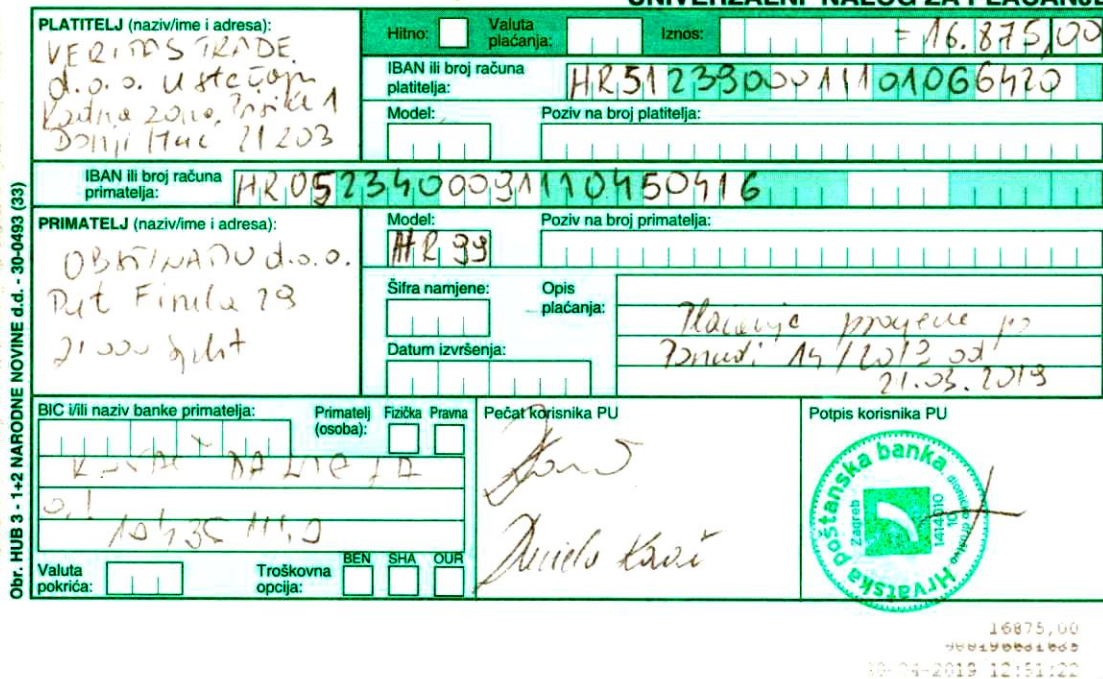 UNIVERZALNI NALOG ZA PLAĆANJE
PLATITELJ (naziv/ime i adresa):
VERITAS TRADE
d.o.o. u stečaju
zona,
21203
Hitno:
Valuta plaćanja:
Iznos:
=16.875,00
IBAN ili broj računa platitelja:
HR5123900011101066420
Model:
Poziv na broj platitelja:
IBAN ili broj računa primatelja:
HR0523400091110450416
PRIMATELJ (naziv/ime i adresa):
d.o.o.
Put Firula
21000 Split
Model:
HR99
Poziv na broj primatelja:
Šifra namjene:
Opis plaćanja:
Plaćanje procjene po
Ponudi od
21.03.2019
Datum izvršenja:
BIC i/ili naziv banke primatelja:
Primatelj (osoba):
Fizička
Pravna
Valuta pokrića:
Troškovna opcija:
BEN
SHA
OUR
Pečat korisnika PU
Potpis korisnika PU
Hrvatska poštanska banka, dioničko društvo
Zagreb
Obr. HUB 3 - 1+2 NARODNE NOVINE d.d. - 30-0493 (33)
16875,00
2019 12:51:22